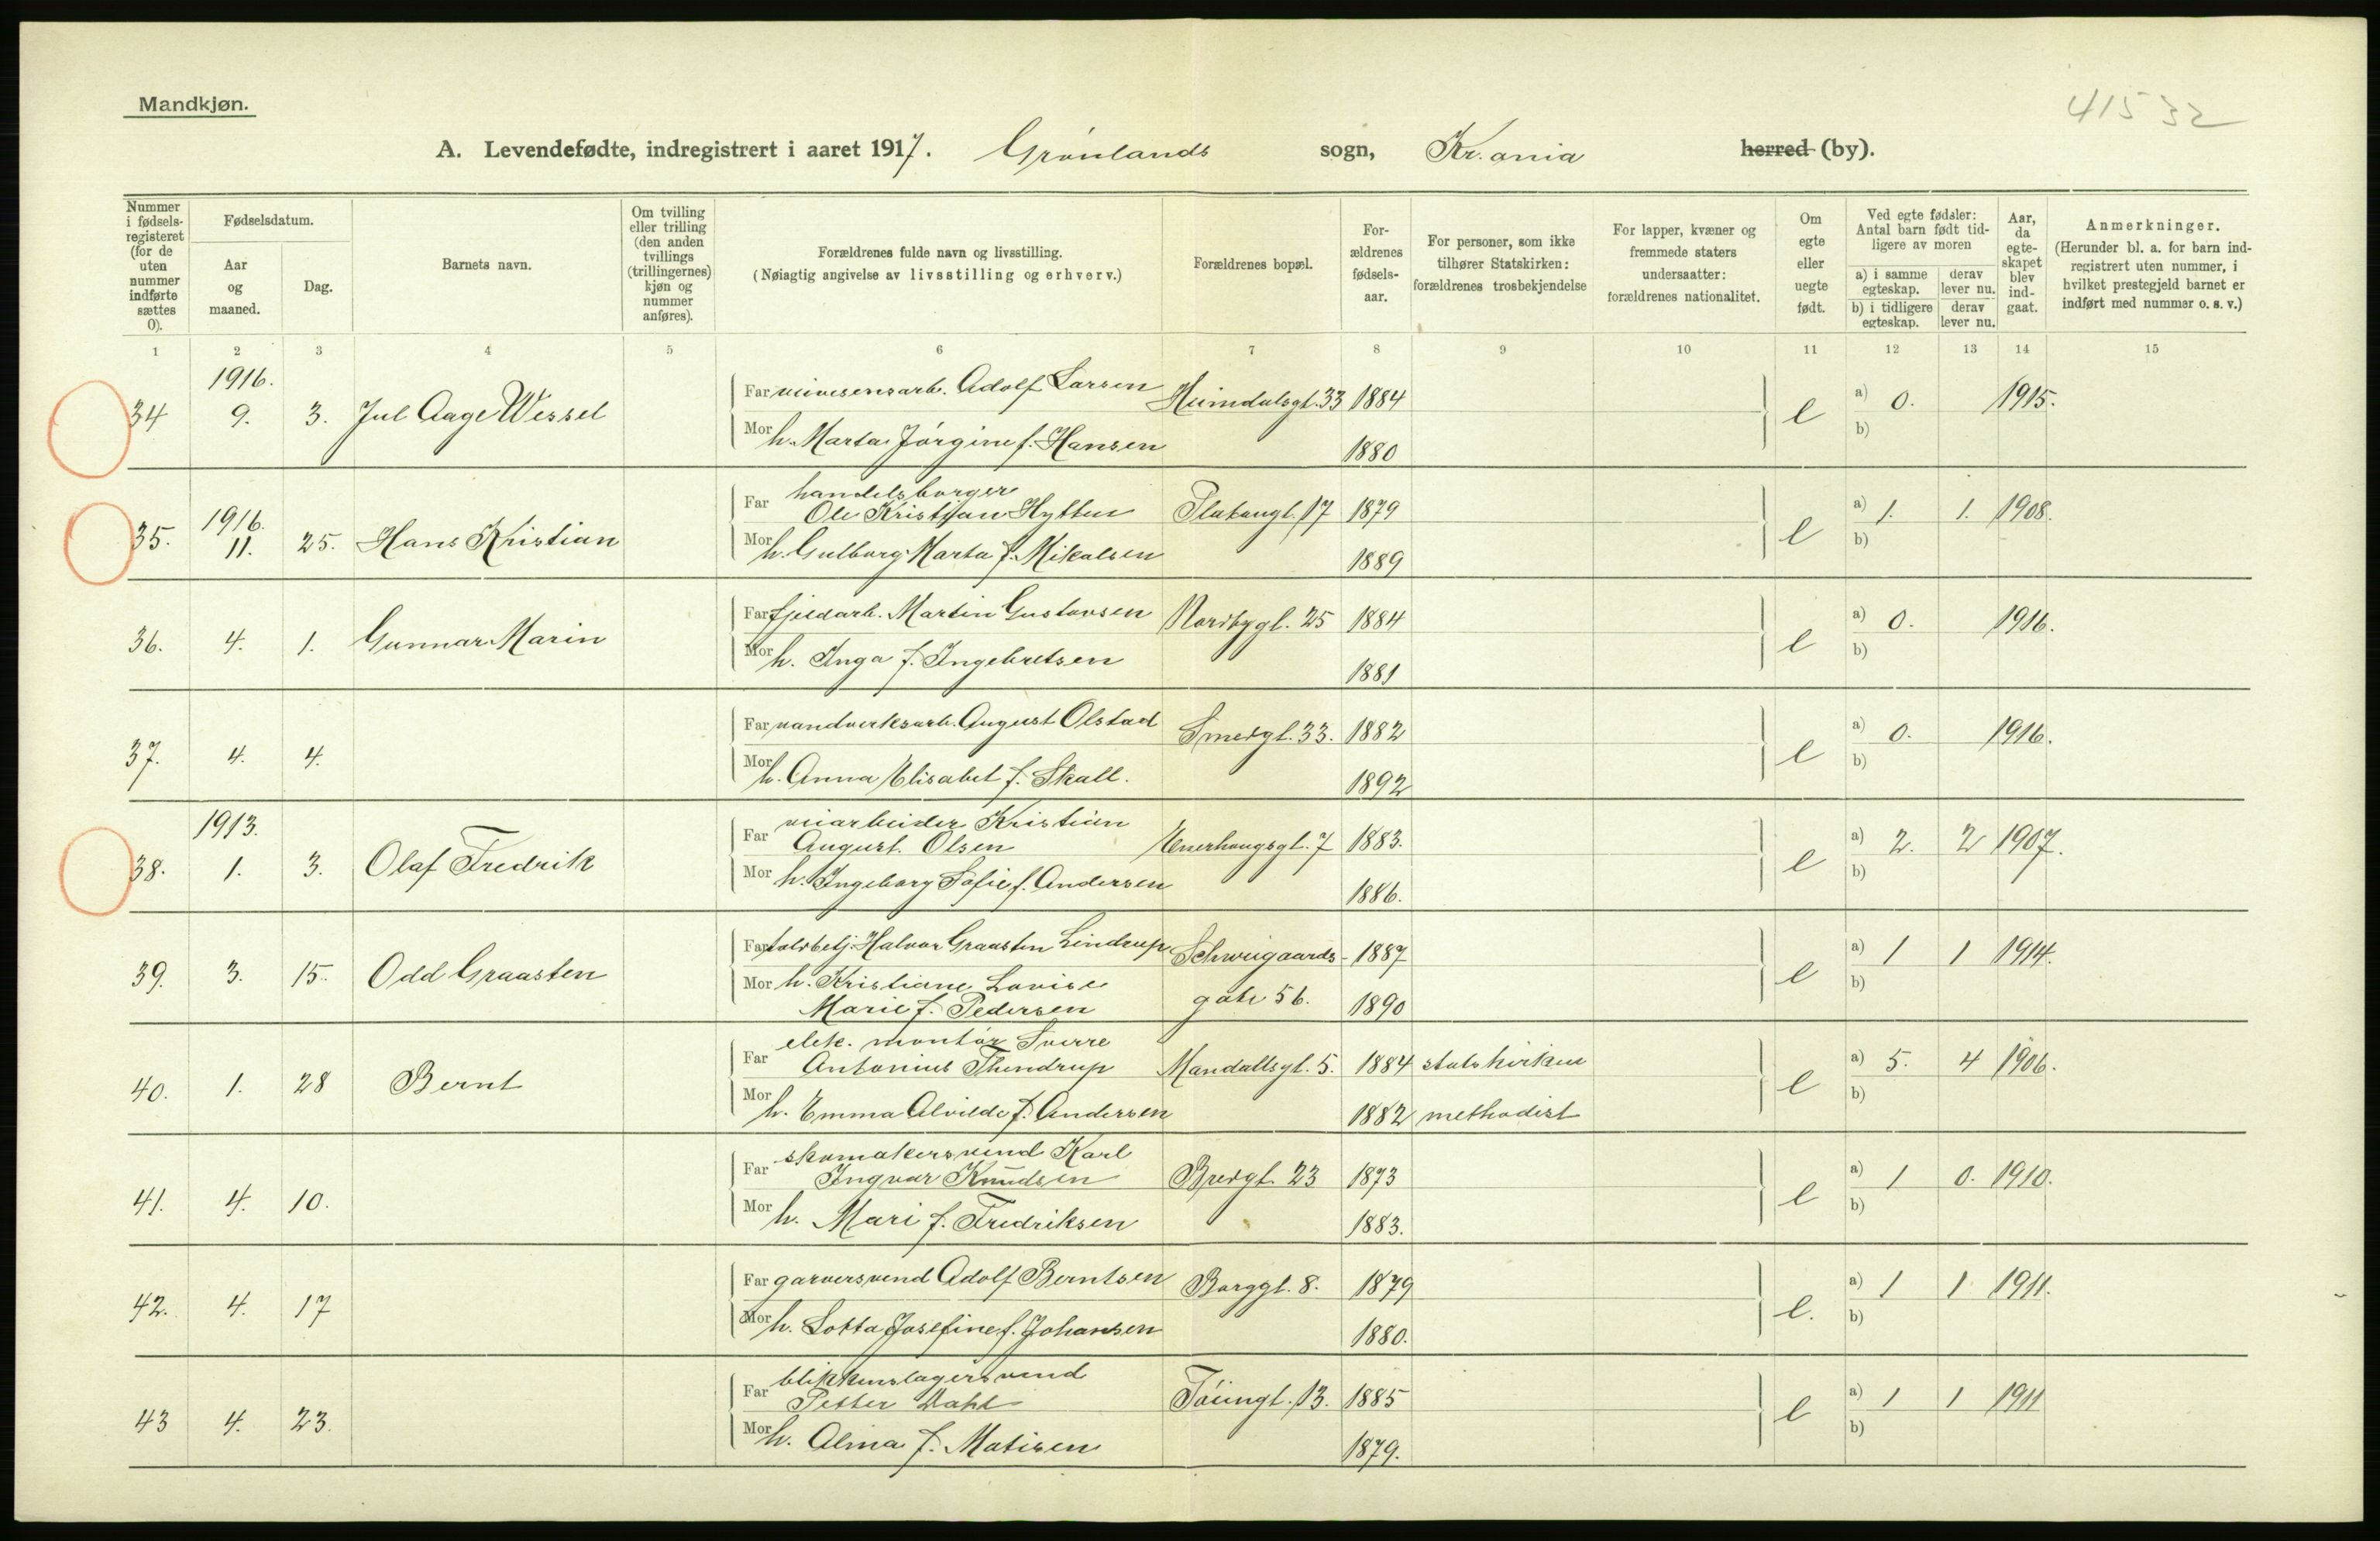 Mandkjøn.
41532
A. Levendefødte, indregistrert i aaret 1917. Grønlands sogn, Kr.ania herred (by).
Nummer i fødsels-registeret (for de uten nummer indførte sættes 0).
Fødselsdatum.
Aar og maaned.
Dag.
Barnets navn.
Om tvilling eller trilling (den anden tvillings (trillingernes) kjøn og nummer anføres).
Forældrenes fulde navn og livsstilling.
(Nøiagtig angivelse av livsstilling og erhverv.)
Forældrenes bopæl.
For-ældrenes fødsels-aar.
For personer, som ikke tilhører Statskirken: forældrenes trosbekjendelse
For lapper, kvæner og fremmede staters undersaatter: forældrenes nationalitet.
Om egte eller uegte født.
Ved egte fødsler: Antal barn født tid-ligere av moren
a) i samme egteskap.
derav lever nu.
b) i tidligere egteskap.
derav lever nu.
Aar, da egte-skapet blev ind-gaat.
Anmerkninger.
(Herunder bl. a. for barn ind-registrert uten nummer, i hvilket prestegjeld barnet er indført med nummer o. s. v.)
1 2 3 4 5 6 7 8 9 10 11 12 13 14 15
1916.
34 9. 3. Jul Aage Wessel Far Adolf Larsen Heimdalsgt. 33 1884 e a) 0. 1915.
Mor h. Marta Jørgine f. Hansen 1880 b)
handelsborger
35. 1916. 11. 25. Hans Kristian Far Ole Kristian Hytten Platougt. 17 1879 e a) 1. 1. 1908.
Mor h. Gulborg Marta f. Mikalsen 1889 b)
36. 4. 1. Gunnar Marin Far fjeldarb. Martin Gustavsen Nordbygt. 25 1884 e a) 0. 1916.
Mor h. Inga f. Ingebretsen 1881 b)
37. 4. 4. Far vandverksarb. August Olstad Smedgt. 33. 1882 e a) 0. 1916.
Mor h. Anna Elisabet f. Skall. 1892 b)
1913. veiarbeider Kristian
38. 1. 3. Olaf Fredrik Far August Olsen Enerhaugsgt. 7 1883. e a) 2. 2 1907.
Mor h. Ingeborg Sofie f. Andersen 1886. b)
39. 3. 15. Odd Graasten Far toldbetj. Halvor Graasten Lindrup Schweigaards- 1887 e a) 1 1 1914.
Mor h. Kristiane Lovise gate 56. 1890 b)
Marie f. Pedersen
elek. montør Sverre
40. 1. 28 Bernt Far Antonius Thendrup Mandallsgt. 5. 1884 statskirken e a) 5. 4 1906.
Mor h. Emma Alvilde f. Andersen 1882 methodist b)
skomakersvend Karl
41. 4. 10. Far Ingvar Knudsen Bredgt. 23 1873 e a) 1 0. 1910.
Mor h. Mari f. Fredriksen 1883. b)
42. 4. 17 Far garversvend Adolf Berntsen Borggt. 8. 1879 e. a) 1 1 1911.
Mor h. Lotta Josefine f. Johansen 1880. b)
blikkenslagersvend
43 4. 23. Far Petter Dahl Tøiengt. 13. 1885 e a) 1 1 1911
Mor h. Alma f. Matisen 1879. b)